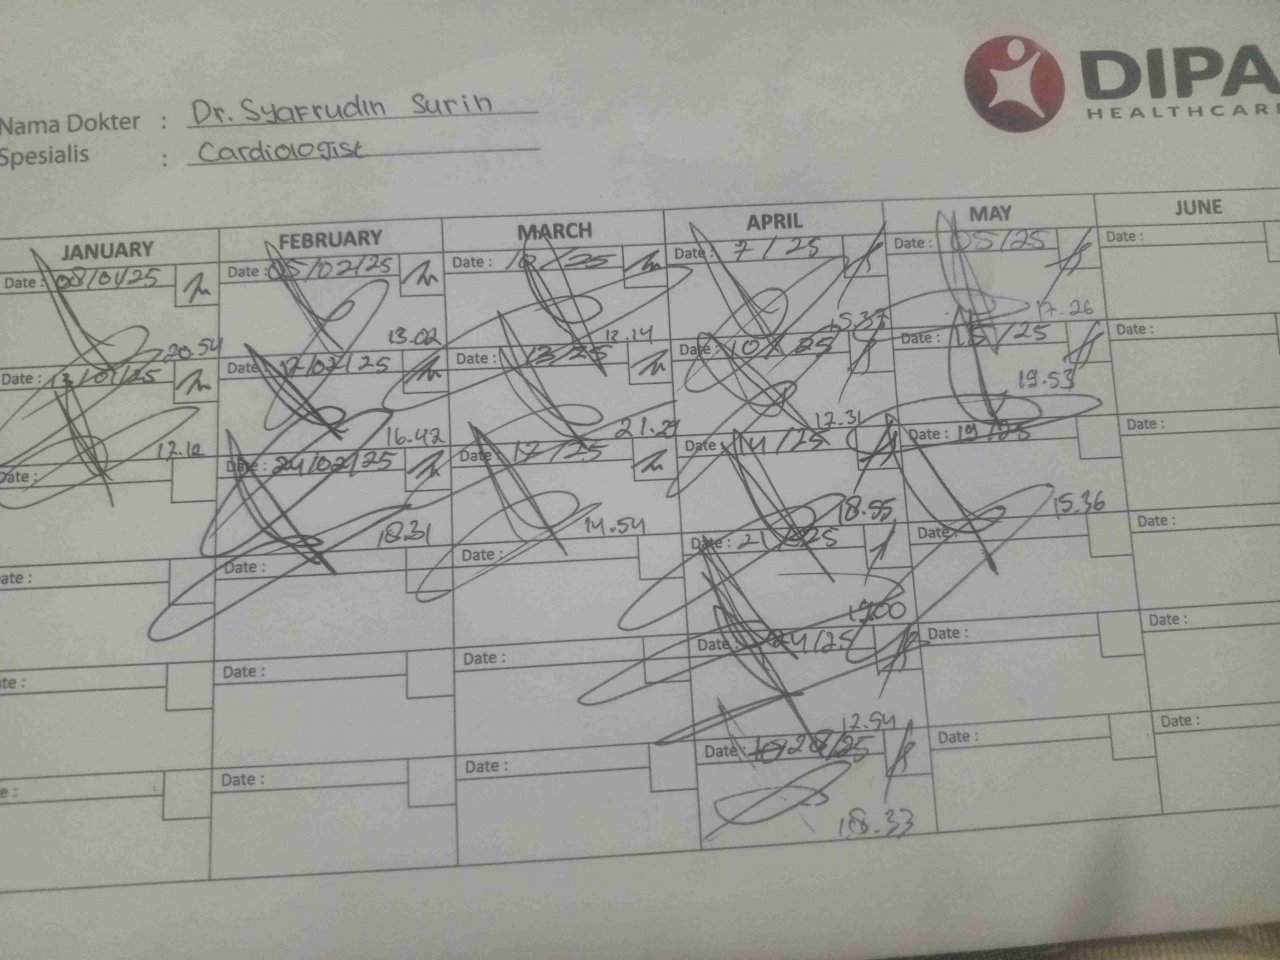 DIPA
HEALTHCAR
Nama Dokter : Dr. Syafrudin Surin
Spesialis : Cardiologist
JANUARY FEBRUARY MARCH APRIL MAY JUNE
Date : 08/01/25 Date : 05/02/25 Date : 10/25 Date : 7/25 Date : 05/25 Date :
20.54 13.02 12.14 15.37 17.26
Date : 13/01/25 Date : 17/02/25 Date : 13/25 Date : 10/25 Date : 15/25 Date :
17.10 16.42 21.21 17.31 19.53
Date : Date : 24/02/25 Date : 17/25 Date : 14/25 Date : 19/25 Date :
18.31 14.54 18.55 15.36
ate : Date : Date : Date : 21/25 Date : Date :
te : Date : Date : Date : 24/25 Date : Date :
12.54
e : Date : Date : Date : 28/25 Date : Date :
18.33